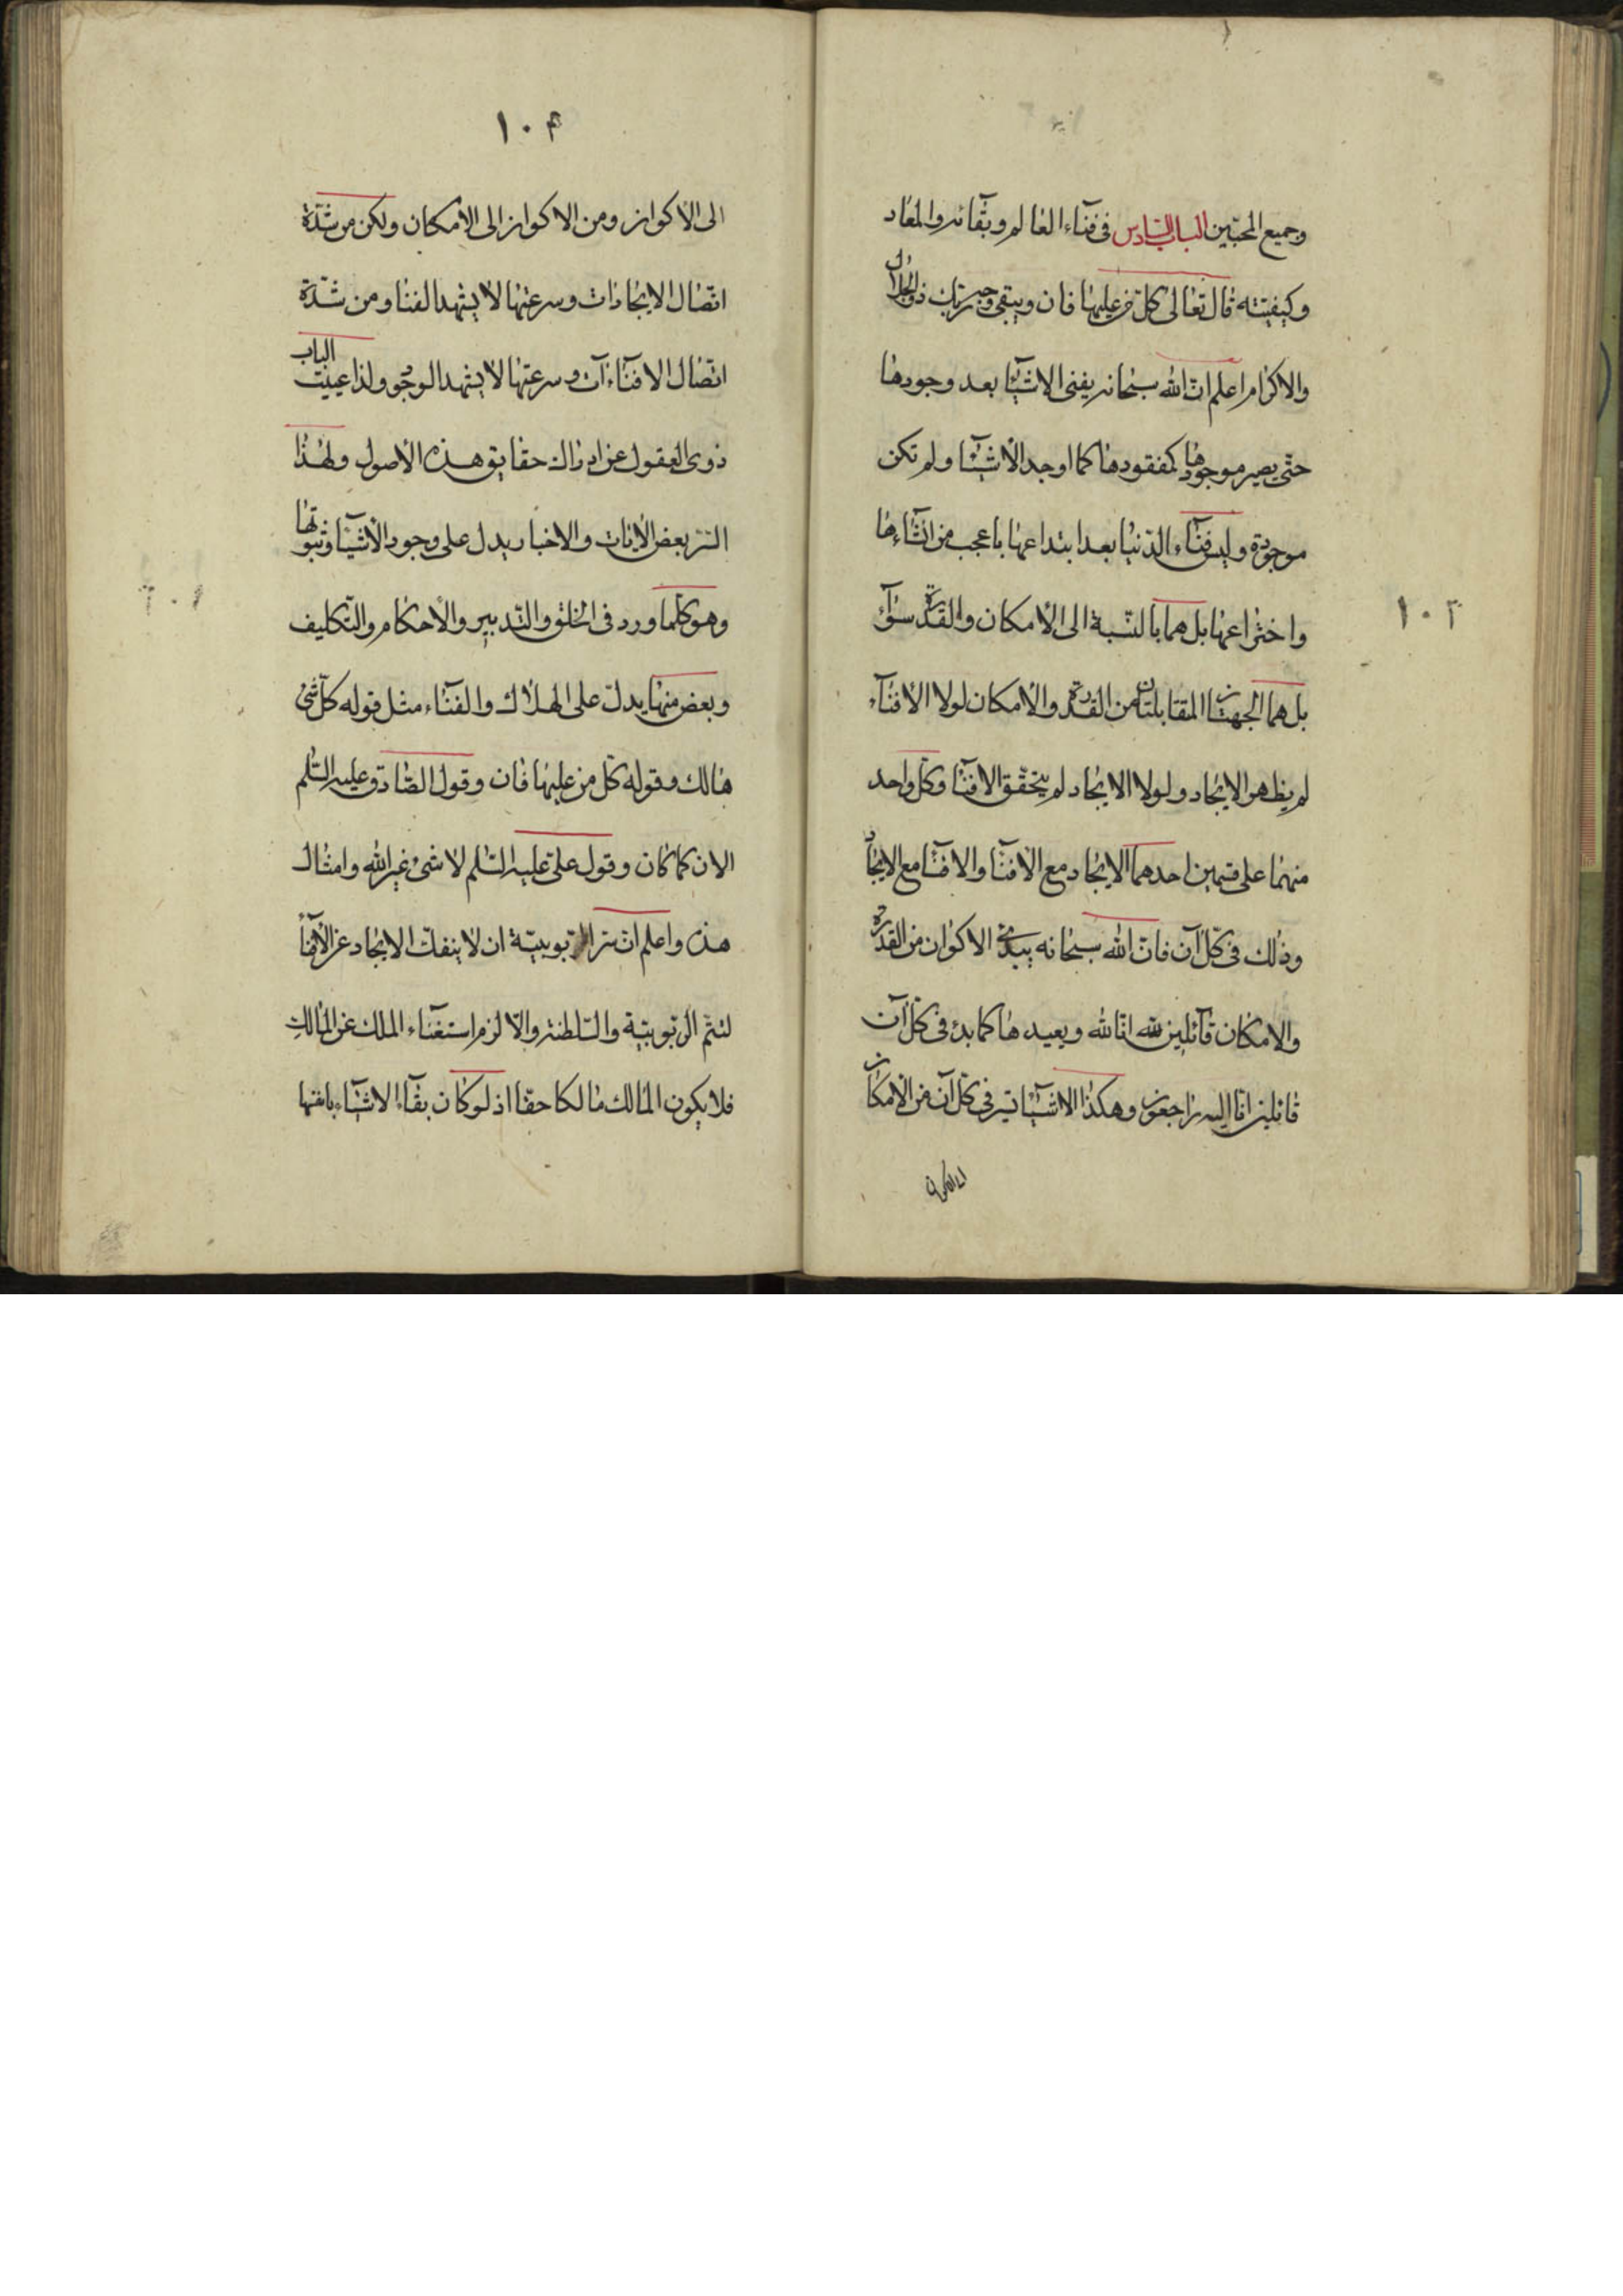 وجميع المحبّين الباب السّادس فى فنآء العالم وبقآئه والمعاد
وكيفيّته قال تعالى كلّ من عليها فان ويبقى وجه ربّك ذو الجلال
والاكرام اعلم انّ الله سبحانه يفنى الاشيآء بعد وجودها
حتّى يصير موجودها كمفقودها كما اوجد الاشيآء ولم تكن
موجودة وليس فنآء الدّنيا بعد ابتداعها باعجب من انشآءها
واختراعها بل هما بالنّسبة الى الامكان والقدرة سوآء
بل هما الجهتان المقابلتان من القدرة والامكان لولا الافنآء
لم يظهر الايجاد ولولا الايجاد لم يتحقّق الافنآء وكلّ واحد
منهما على قسمين احدهما الايجاد مع الافنآء والافنآء مع الايجاد
وذلك فى كلّ آن فانّ الله سبحانه يبدئ الاكوان من القدرة
والامكان قآئلين لله انّا لله ويعيدها كما بدئ فى كلّ آن
قائلين انّا اليه راجعون وهكذا الاشيآء تسير فى كلّ آن من الامكان
الى الاكوان
١٠٣
١٠۴
الى الاكوان ومن الاكوان الى الامكان ولكن من شدّة
اتّصال الايجادات وسرعتها لا يشهد الفنا ومن شدّة
اتّصال الافنآءآت وسرعتها لا يشهد الوجود ولذا عييت الباب
ذوى العقول عن ادراك حقايق هذه الاصول ولهذا
السّر بعض الايات والاخبار يدل على وجود الاشيآء وثبوتها
وهو كلّما ورد فى الخلق والتّدبير والاحكام والتّكليف
وبعض منها يدلّ على الهلاك والفنآء مثل قوله كلّ شئ
هالك وقوله كلّ من عليها فان وقول الصّادق عليه السّلم
الان كما كان وقول علىّ عليه السّلم لا شئ غير الله وامثال
هذه واعلم انّ سرّ الرّبوبيّة ان لا ينفكّ الايجاد عن الافنآء
لتتمّ الرّبوبيّة والسّلطنة والاّ لزم استغنآء الملك عن المالك
فلا يكون المالك مالكا حقا اذ لو كان بقآء الاشيآء بانفسها